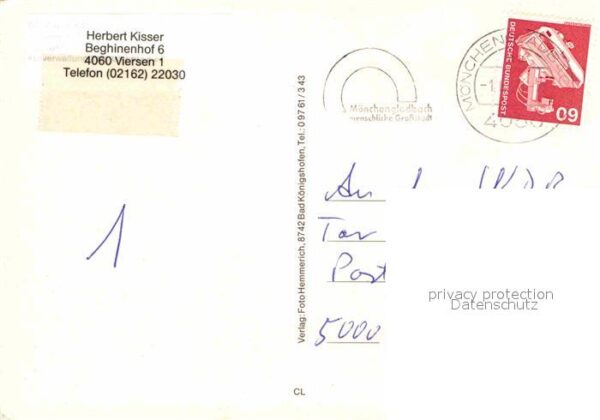 Herbert Kisser
Beghinenhof 6
4060 Viersen 1
Telefon (02162) 22030
Mönchengladbach
menschliche Großstadt
MÖNCHEN
DEUTSCHE BUNDESPOST
60
1
Verlag: Foto Hemmerich, 8742 Bad Königshofen, Tel.: 09761/343
An
Post
5000
privacy protection
Datenschutz
CL